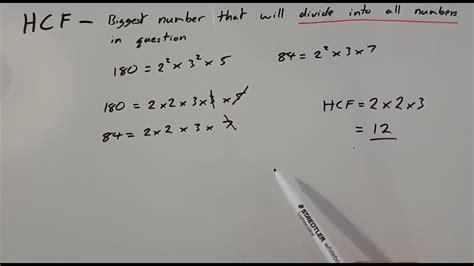 HCF – Biggest number that will divide into all numbers
in question
180 = 2² x 3² x 5
84 = 2² x 3 x 7
180 = 2 x 2 x 3 x 3 x 5
84 = 2 x 2 x 3 x 7
HCF = 2 x 2 x 3
= 12
STAEDTLER